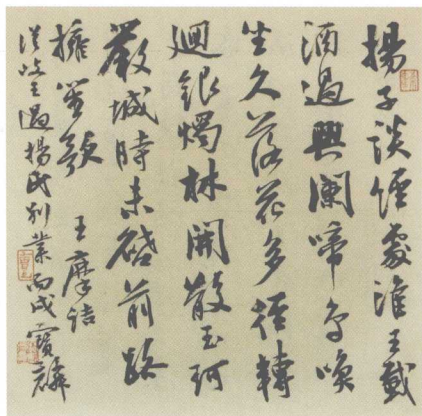 揚子談經處淮王載
酒過興闌啼鳥喚
坐久落花多徑轉
迴銀燭林開散玉珂
嚴城時未啟前路
擁笙歌 王摩詰
從岐王過揚氏別業 丙戌 寶麟